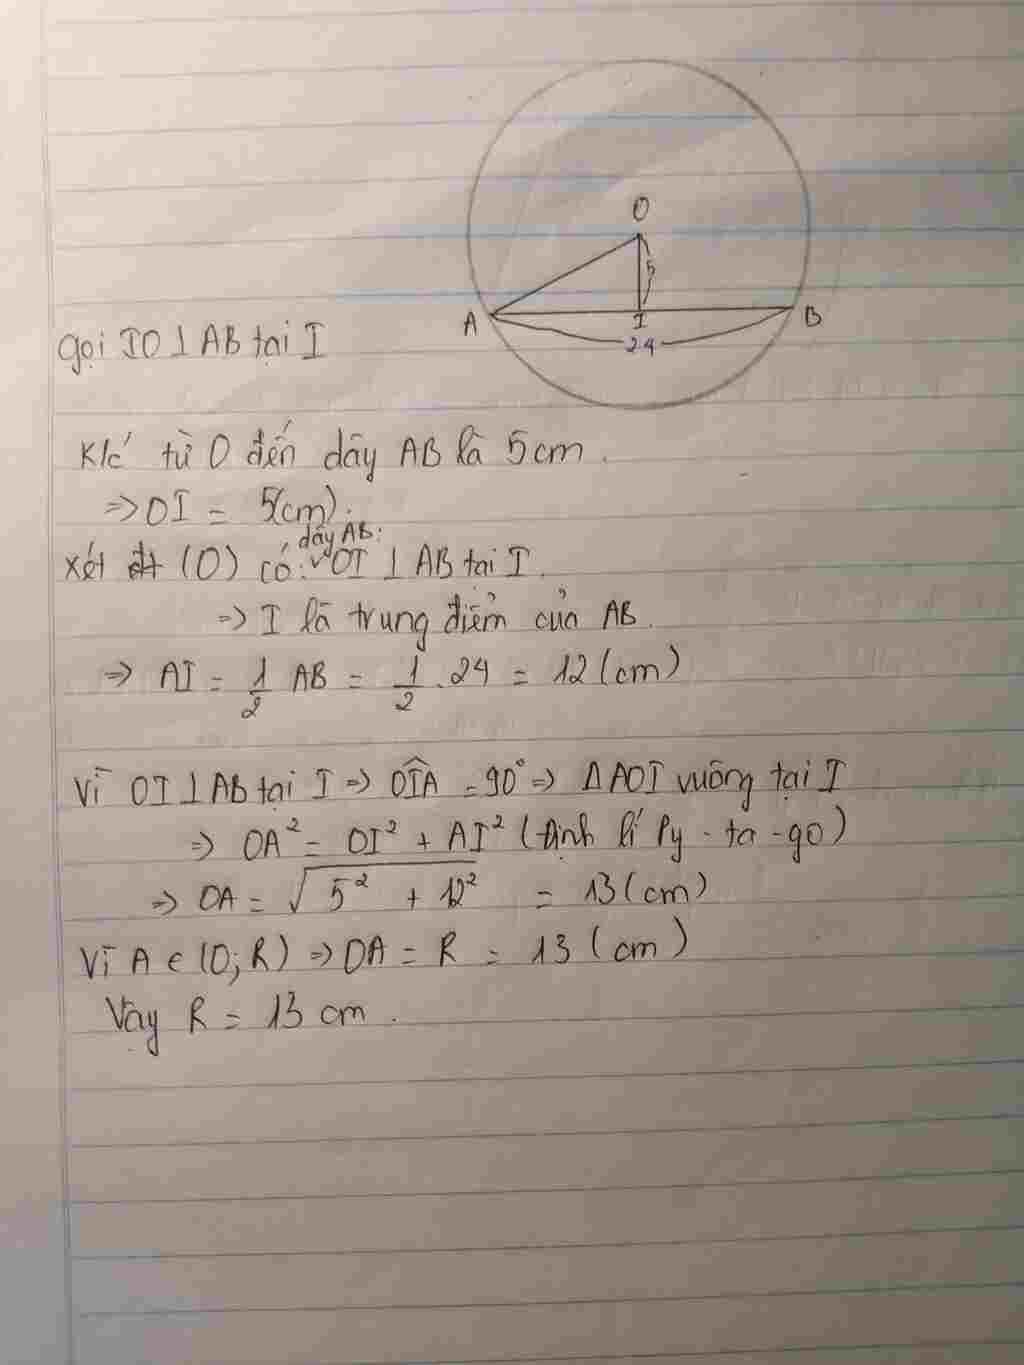 O
5
A I B
24
gọi IO ⊥ AB tại I
K/c từ O đến dây AB là 5cm.
=> OI = 5(cm).
dây AB:
xét đt (O) có: OI ⊥ AB tại I.
=> I là trung điểm của AB.
=> AI = 1/2 AB = 1/2 . 24 = 12 (cm)
Vì OI ⊥ AB tại I => OÎA = 90° => Δ AOI vuông tại I
=> OA² = OI² + AI² (Định lí Py - ta - go)
=> OA = √5² + 12² = 13 (cm)
Vì A ∈ (O; R) => OA = R = 13 (cm)
Vậy R = 13 cm.